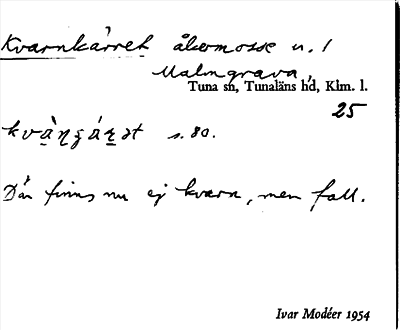 Kvarnkärret åkermosse u. /
Malmgrava,
Tuna sn, Tunaläns hd, Klm. l.
25
s. 80.
Där finns nu ej kvarn, men fall.
Ivar Modéer 1954